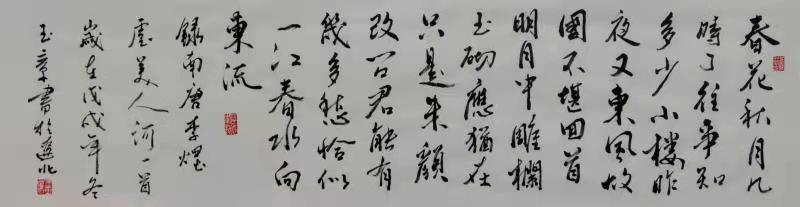 春花秋月几
時了往事知
多少小樓昨
夜又東風故
國不堪回首
明月中雕欄
玉砌應猶在
只是朱顏
改问君能有
幾多愁恰似
一江春水向
東流
錄南唐李煜
虞美人词一首
歲在戊戌年冬
玉章書於北